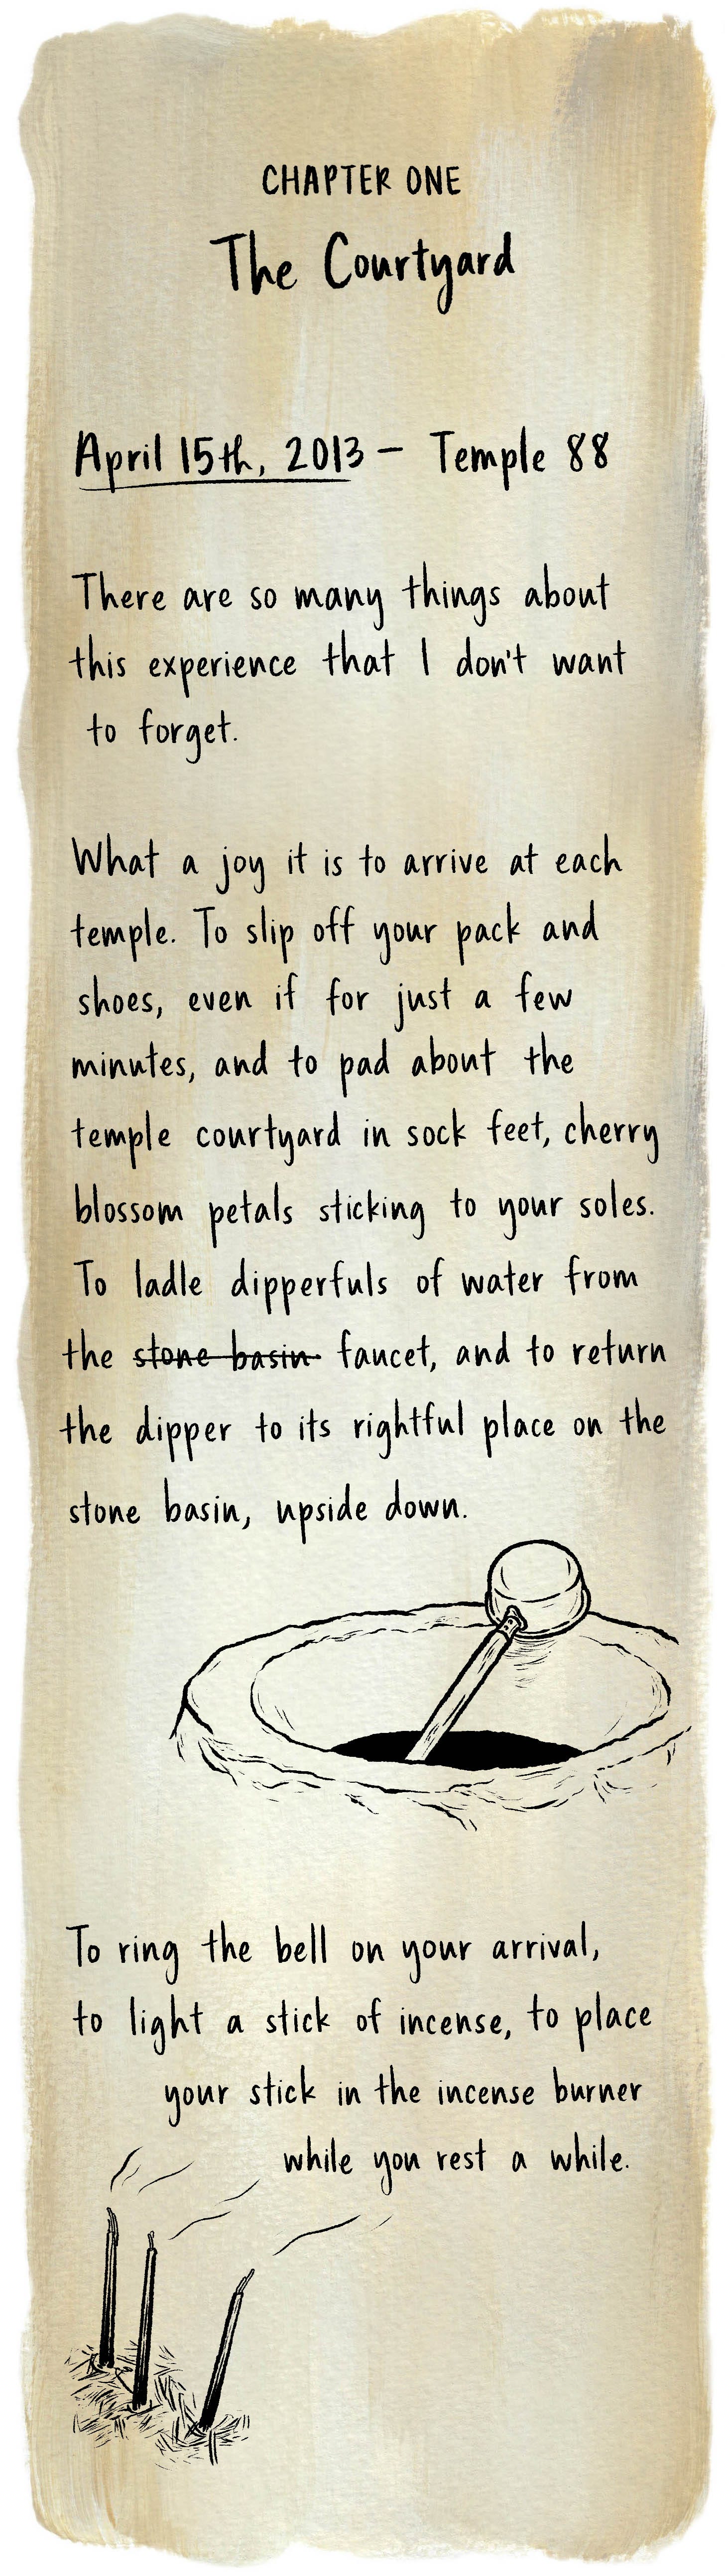 CHAPTER ONE
The Courtyard
April 15th, 2013 – Temple 88
There are so many things about
this experience that I don't want
to forget.
What a joy it is to arrive at each
temple. To slip off your pack and
shoes, even if for just a few
minutes, and to pad about the
temple courtyard in sock feet, cherry
blossom petals sticking to your soles.
To ladle dipperfuls of water from
the stone basin faucet, and to return
the dipper to its rightful place on the
stone basin, upside down.
To ring the bell on your arrival,
to light a stick of incense, to place
your stick in the incense burner
while you rest a while.